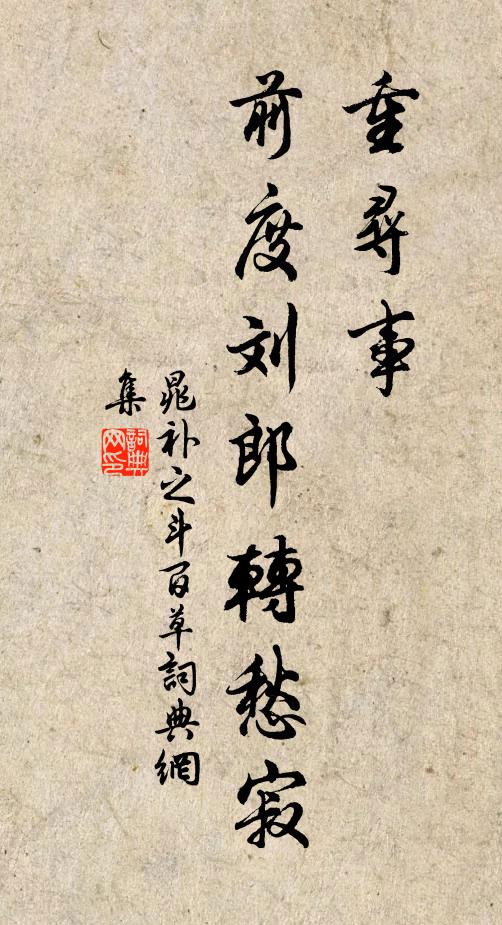 重尋事
前度刘郎轉愁寂
晁补之斗百草詞典網
集
詞典
网印